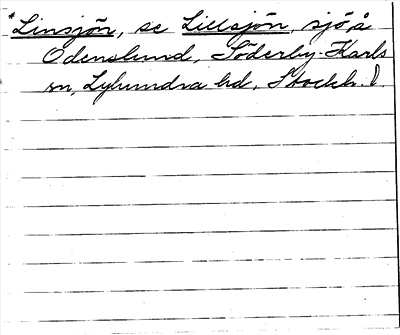 *Linsjön, se Lillsjön, sjö, å
Odenslund, Söderby-Karls
sn, Lyhundra hd, Stockh. l.